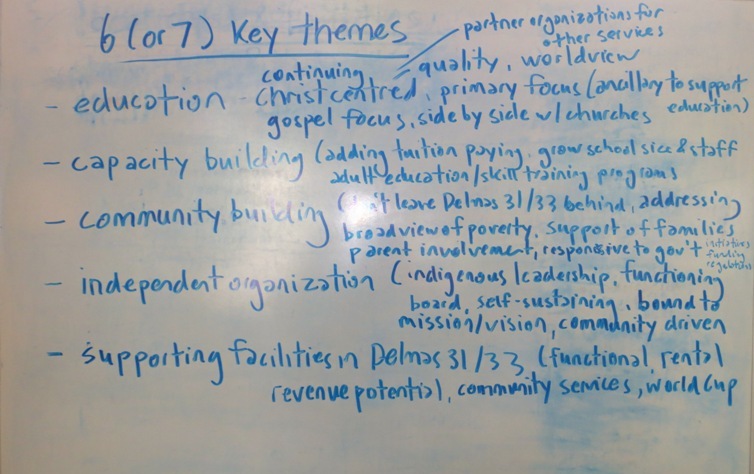 6 (or 7) Key themes
partner organizations for
other services
quality, worldview
continuing
- education - Christ centred, primary focus (ancillary to support
education)
gospel focus, side by side w/ churches
- capacity building (adding tuition paying, grow school size & staff
adult education/skill training programs
- community building ( leave Delmas 31/33 behind, addressing
broad view of poverty, support of families
parent involvement, responsive to gov't initiatives
funding
regulations
- independent organization (indigenous leadership, functioning
board, self-sustaining, bound to
mission/vision, community driven
- supporting facilities in Delmas 31/33 (functional, rental
revenue potential, community services, world cup